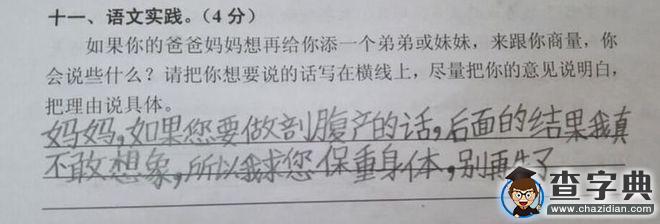 十一、语文实践。(4分)
如果你的爸爸妈妈想再给你添一个弟弟或妹妹，来跟你商量，你
会说些什么？请把你想要说的话写在横线上，尽量把你的意见说明白，
把理由说具体。
妈妈，如果您要做剖腹产的话，后面的结果我真
不敢想象，所以我求您保重身体，别再生了
查字典
www.chazidian.com